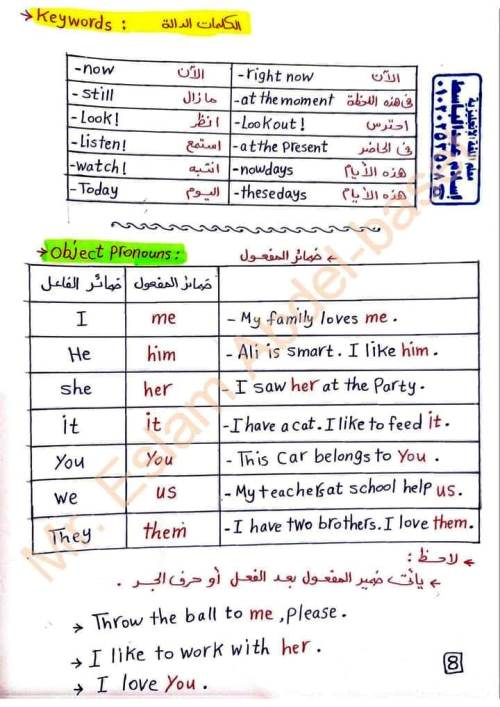 → Keywords : الكلمات الدالة
-now الآن -right now الآن
-still مازال -at the moment فى هذه اللحظة
-Look! انظر -Lookout! احترس
-Listen! استمع -at the Present فى الحاضر
-watch! انتبه -nowdays هذه الأيام
-Today اليوم -thesedays هذه الأيام
معلم اللغة الإنجليزية
إسلام عبدالباسط
→ Object Pronouns : ← ضمائر المفعول
ضمائر الفاعل ضمائر المفعول
I me - My family loves me .
He him - Ali is smart. I like him.
she her - I saw her at the Party.
it it -I have a cat. I like to feed it.
You You - This Car belongs to You .
we us - My teachers at school help us.
They them -I have two brothers. I love them.
← لاحظ :
← يأتى ضمير المفعول بعد الفعل أو حرف الجر .
→ Throw the ball to me ,please.
→ I like to work with her .
→ I love You .
8
Mr. Eslam Abdel-bas